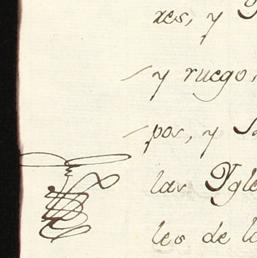 res, y
y ruego,
pos, y
las Ygle
les de la